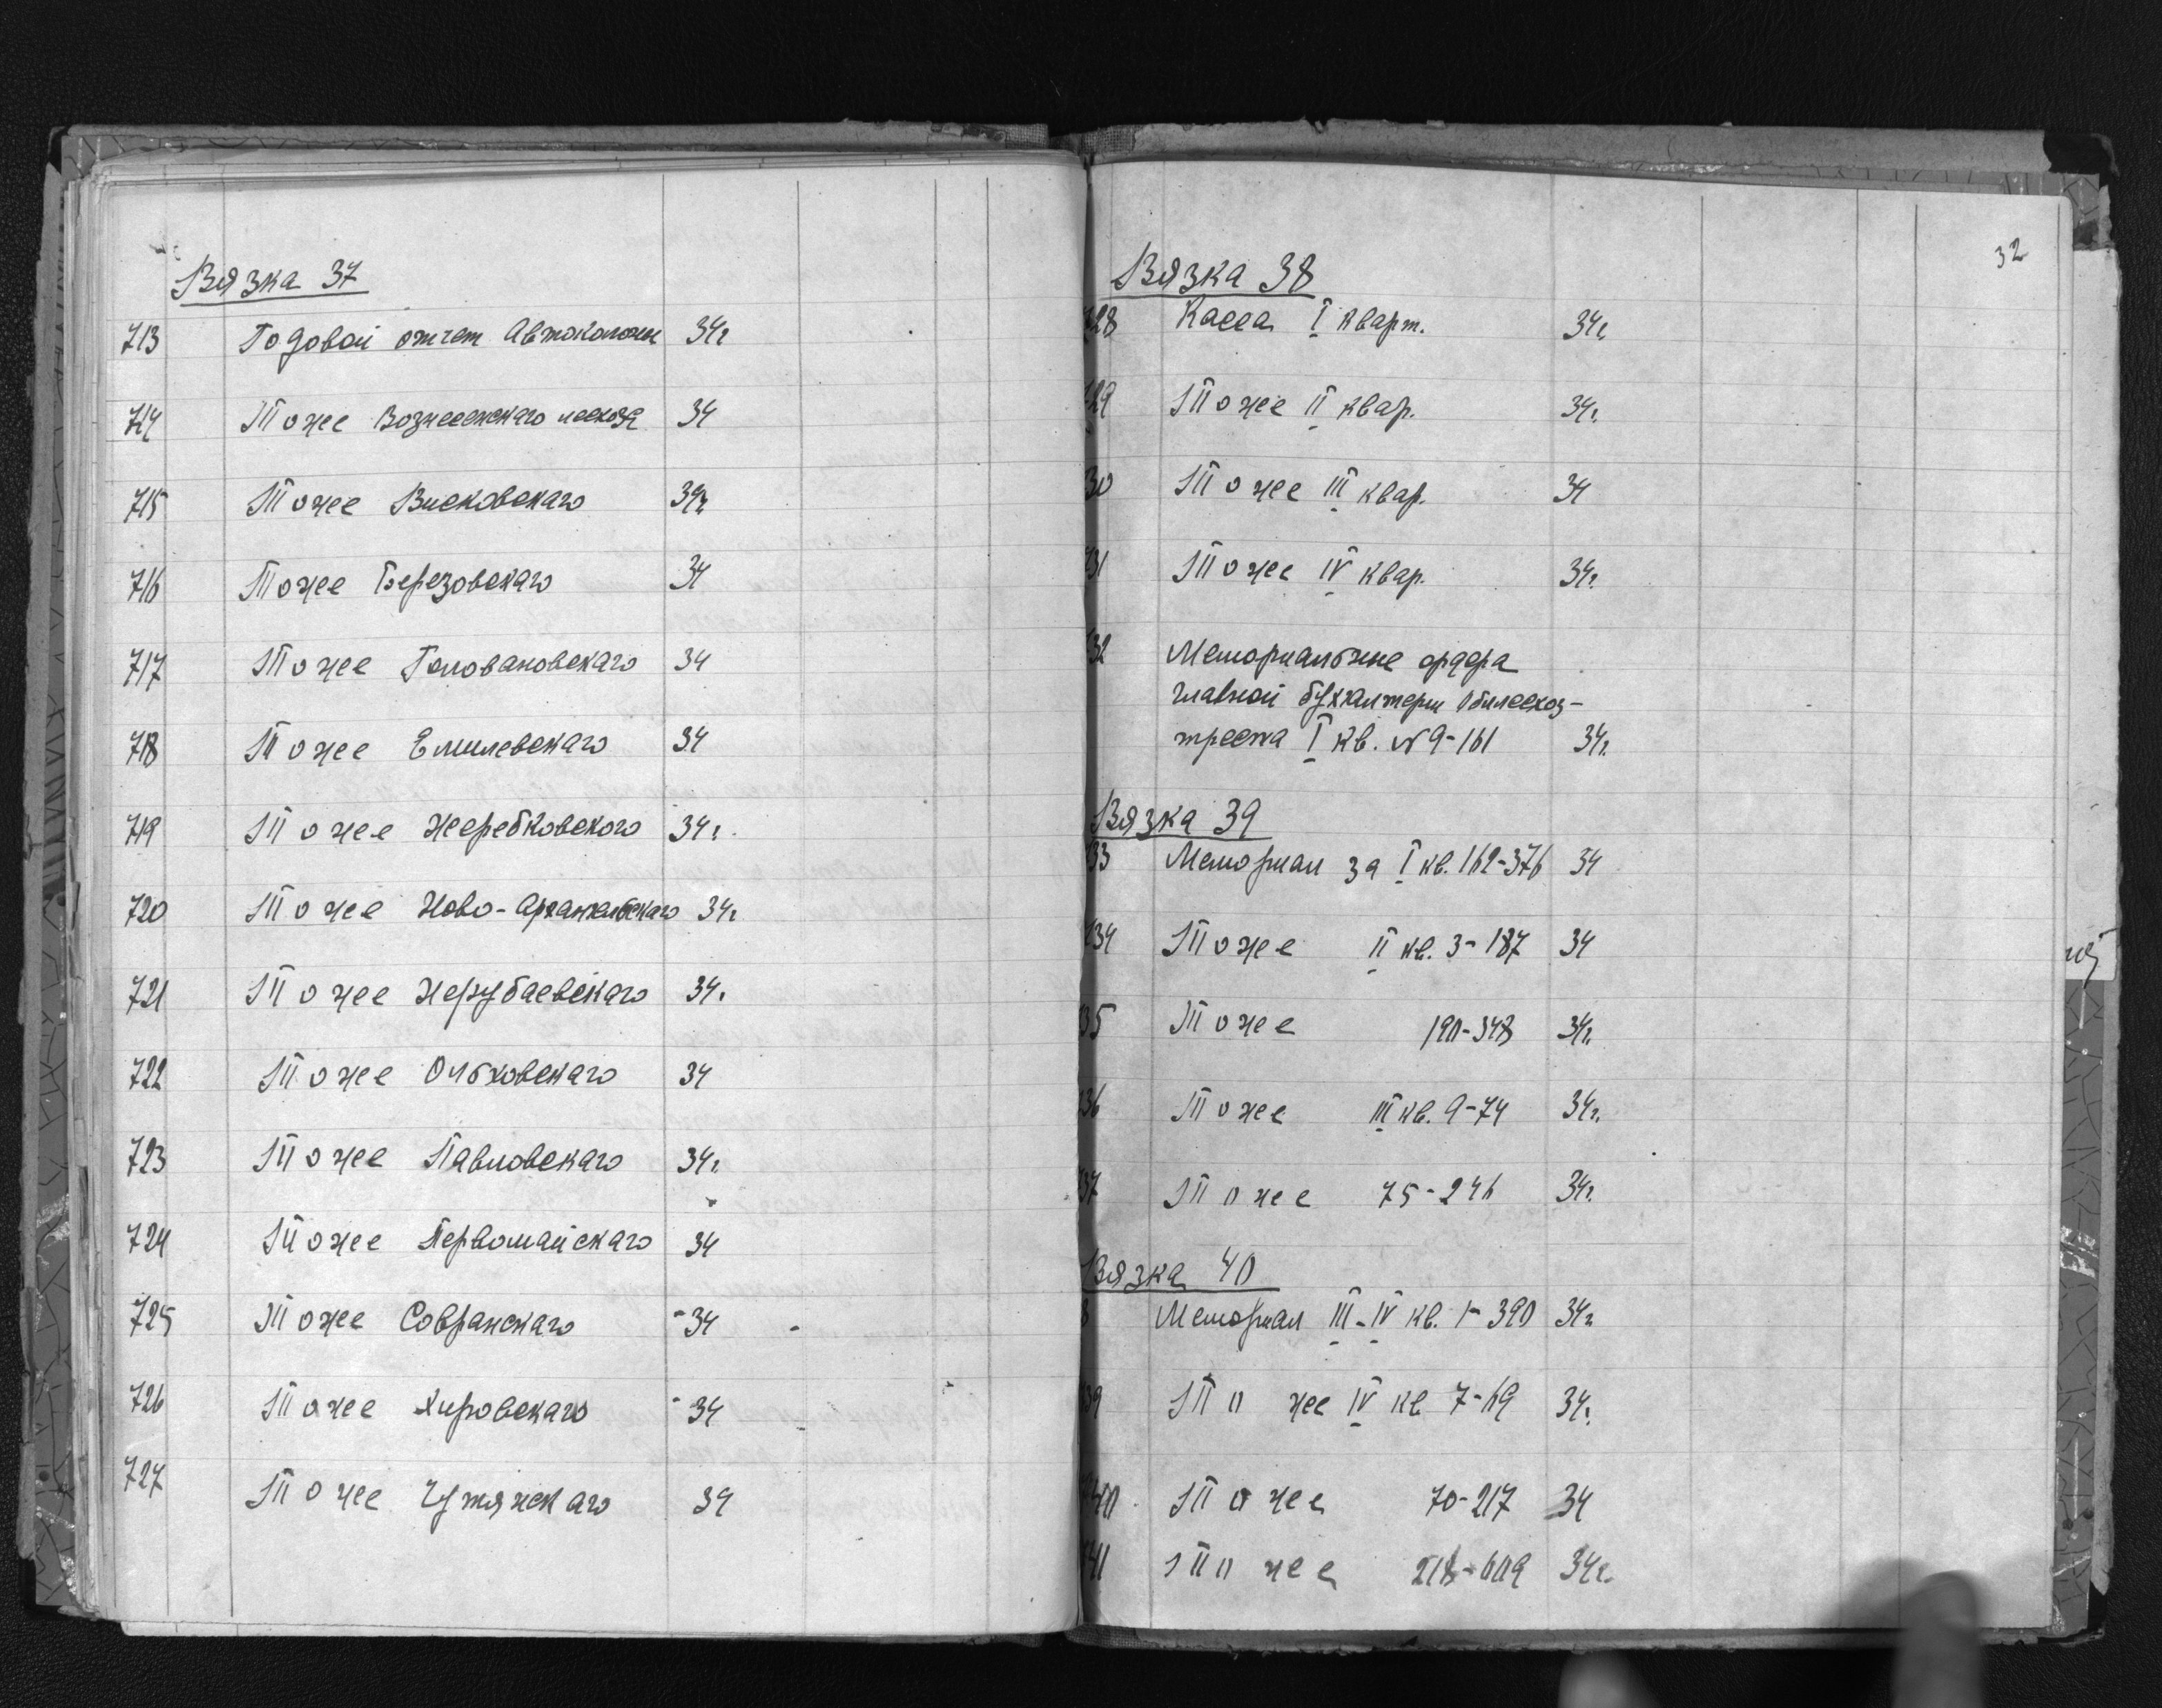 Вязка 37
713 Годовой отчет Автоколоны 34г
714 Тоже Вознесенскаго лесхоза 34
715 Тоже Висковскаго 34г
716 Тоже Березовскаго 34
717 Тоже Головановскаго 34
718 Тоже Емилевскаго 34
719 Тоже Жеребковского 34г.
720 Тоже Ново-Архангельскаго 34г
721 Тоже Нерубаевскаго 34г
722 Тоже Ольховскаго 34
723 Тоже Павловскаго 34г.
724 Тоже Первомайскаго 34
725 Тоже Совранскаго 34
726 Тоже Хировскаго 34
727 Тоже Чутянскаго 34
32
Вязка 38
728 Касса I кварт. 34г.
729 Тоже II квар. 34г.
30 Тоже III квар. 34
731 Тоже IV квар. 34г.
732 Мемориальные ордера
главной бухгалтерии Облесхоз-
треста I кв. № 9-161 34г.
Вязка 39
33 Мемориал за I кв. 162-376 34
734 Тоже II кв. 3-187 34
35 Тоже 190-348 34г.
736 Тоже III кв. 9-74 34г.
737 Тоже 75-246 34г.
Вязка 40
8 Мемориал III-IV кв. 1-390 34г
39 Тоже IV кв 7-69 34г.
740 Тоже 70-217 34
741 Тоже 218-609 34г.